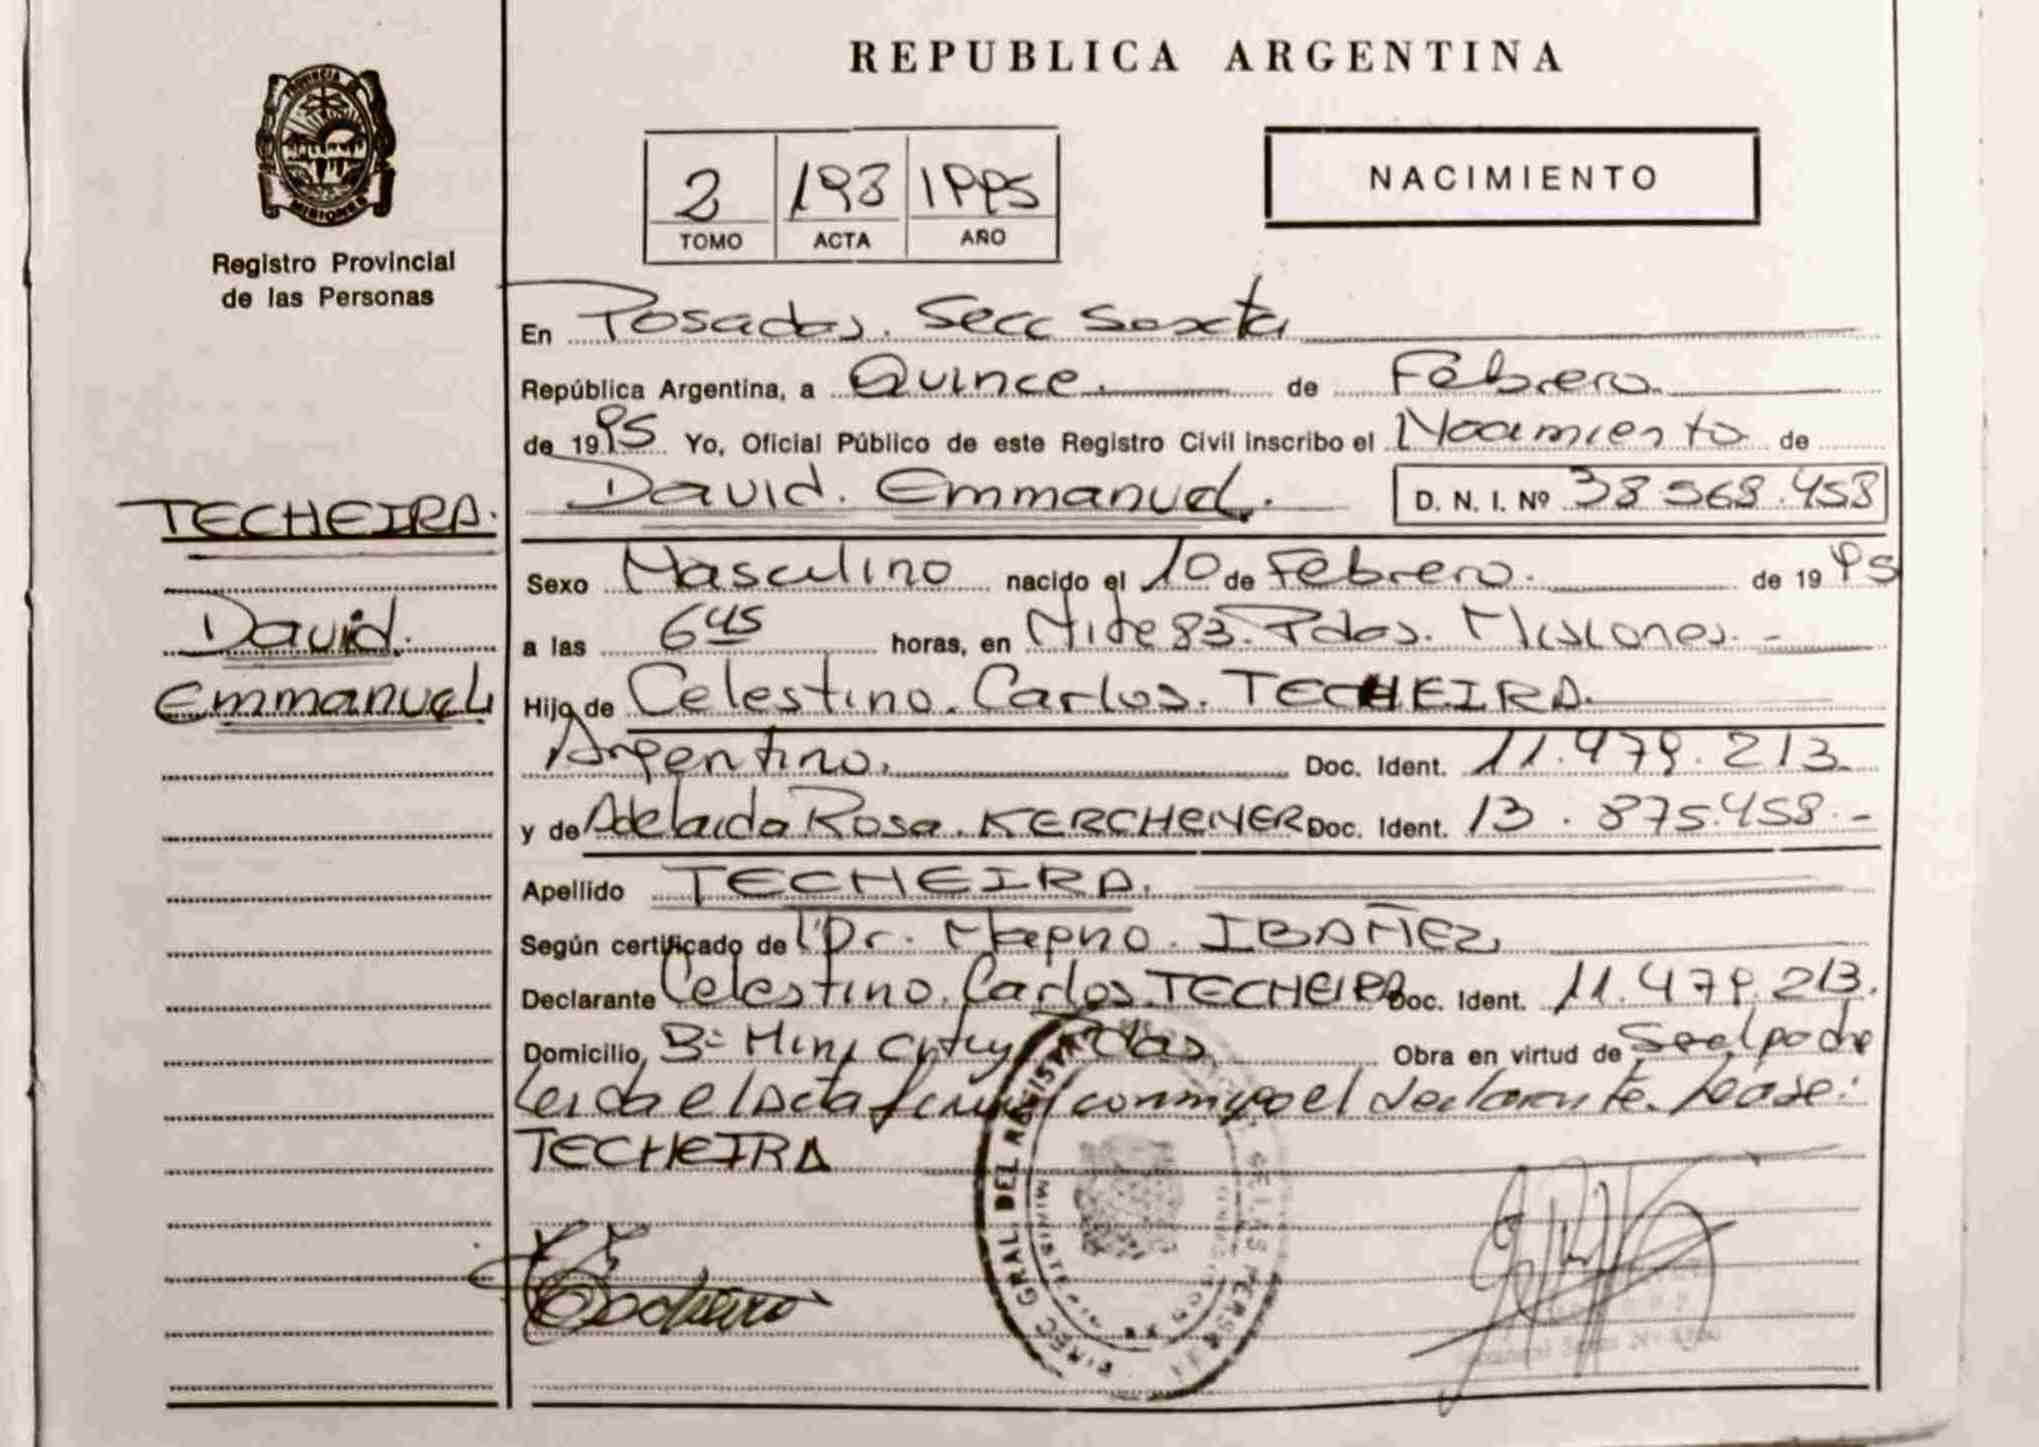 REPUBLICA ARGENTINA
PROVINCIA DE
MISIONES
Registro Provincial
de las Personas
2 193 1995
TOMO ACTA AÑO
NACIMIENTO
En Posadas. Secc Sexta
República Argentina, a Quince. de Febrero.
de 1995 Yo, Oficial Público de este Registro Civil inscribo el Nacimiento de
David. Emmanuel. D. N. I. Nº 38.568.458
TECHEIRA.
David.
Emmanuel
Sexo Masculino nacido el 10 de Febrero. de 1995
a las 6 45 horas, en Mitre 83. Pdas. Misiones. -
Hijo de Celestino. Carlos. TECHEIRA.
Argentino. Doc. Ident. 11.479.213
y de Adelaida Rosa. KERCHENER Doc. Ident. 13.875.458.-
Apellido TECHEIRA.
Según certificado de Dr. Magno. IBAÑEZ,
Declarante Celestino. Carlos. TECHEIRA Doc. Ident. 11.479.213.
Domicilio, Bº Pdas Obra en virtud de Ser el padre
Leida el Acta firma conmigo el declarante. Lease:
TECHEIRA
DIREC. GRAL. DEL REGISTRO DE LAS PERSONAS